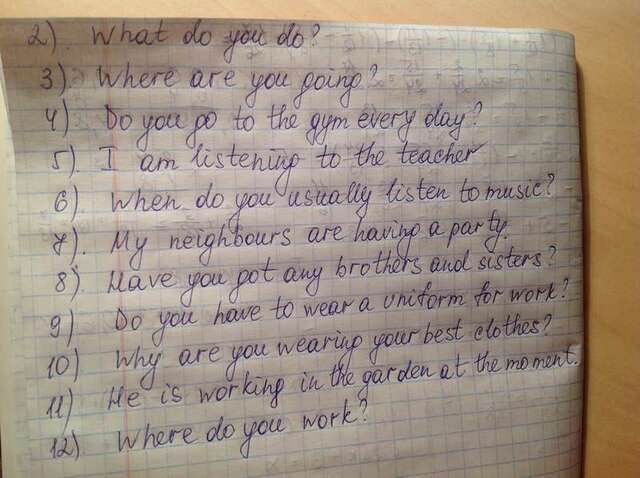 2). What do you do?
3) Where are you going?
4) Do you go to the gym every day?
5). I am listening to the teacher
6) When do you usually listen to music?
7). My neighbours are having a party.
8) Have you got any brothers and sisters?
9) Do you have to wear a uniform for work?
10) Why are you wearing your best clothes?
11) He is working in the garden at the moment.
12) Where do you work?